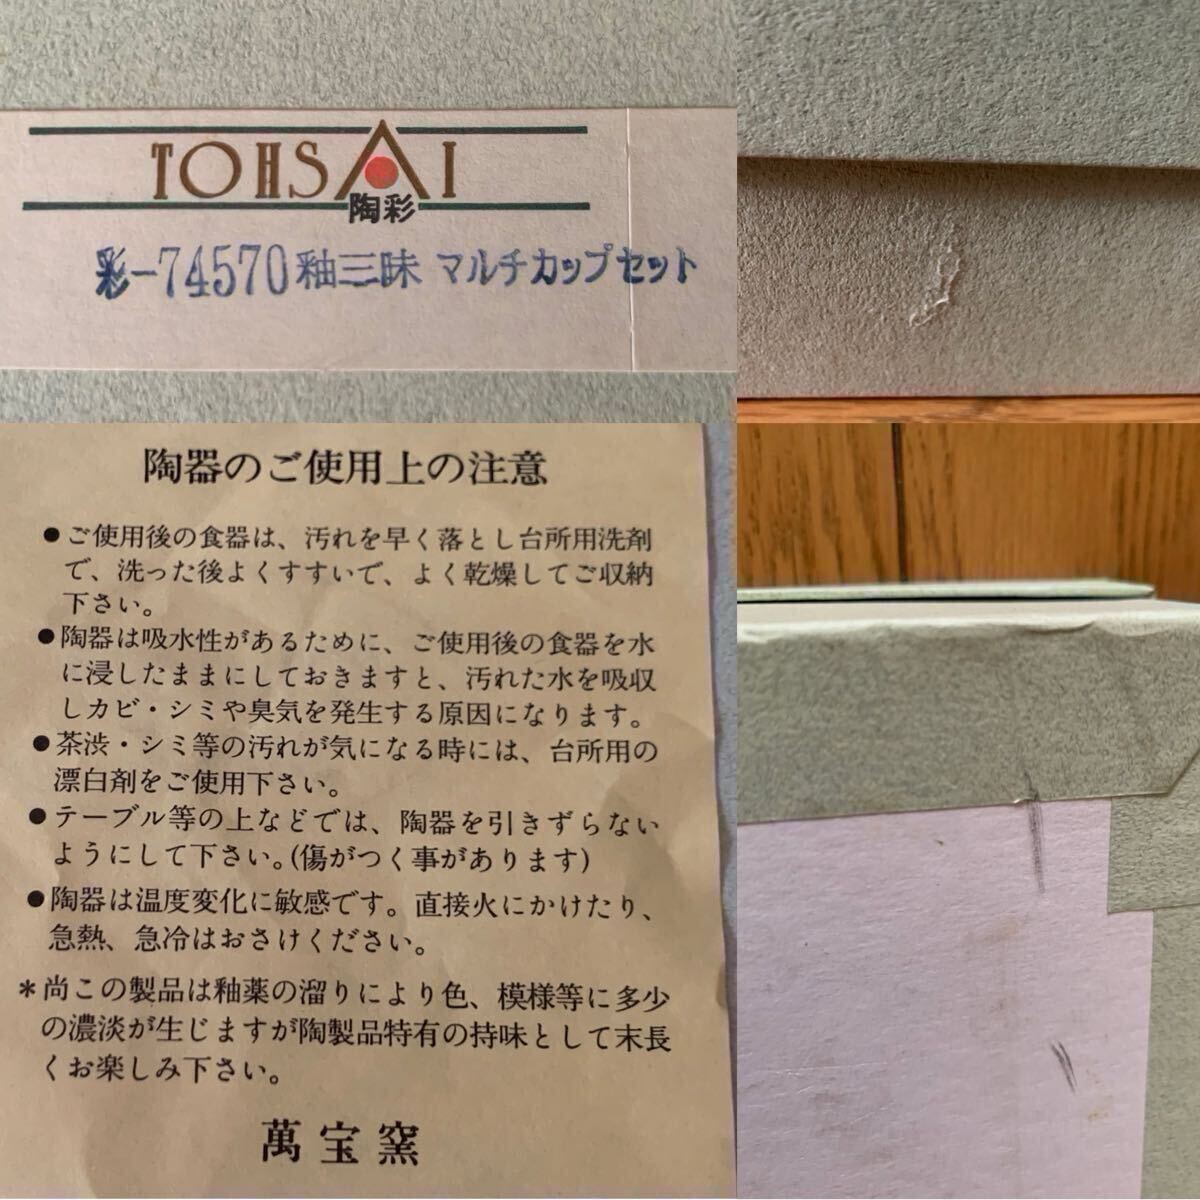 TOHSAI
陶彩
彩-74570釉三昧 マルチカップセット
陶器のご使用上の注意
●ご使用後の食器は、汚れを早く落とし台所用洗剤
で、洗った後よくすすいで、よく乾燥してご収納
下さい。
●陶器は吸水性があるために、ご使用後の食器を水
に浸したままにしておきますと、汚れた水を吸収
しカビ・シミや臭気を発生する原因になります。
●茶渋・シミ等の汚れが気になる時には、台所用の
漂白剤をご使用下さい。
●テーブル等の上などでは、陶器を引きずらない
ようにして下さい。(傷がつく事があります)
●陶器は温度変化に敏感です。直接火にかけたり、
急熱、急冷はおさけください。
*尚この製品は釉薬の溜りにより色、模様等に多少
の濃淡が生じますが陶製品特有の持味として末長
くお楽しみ下さい。
萬宝窯